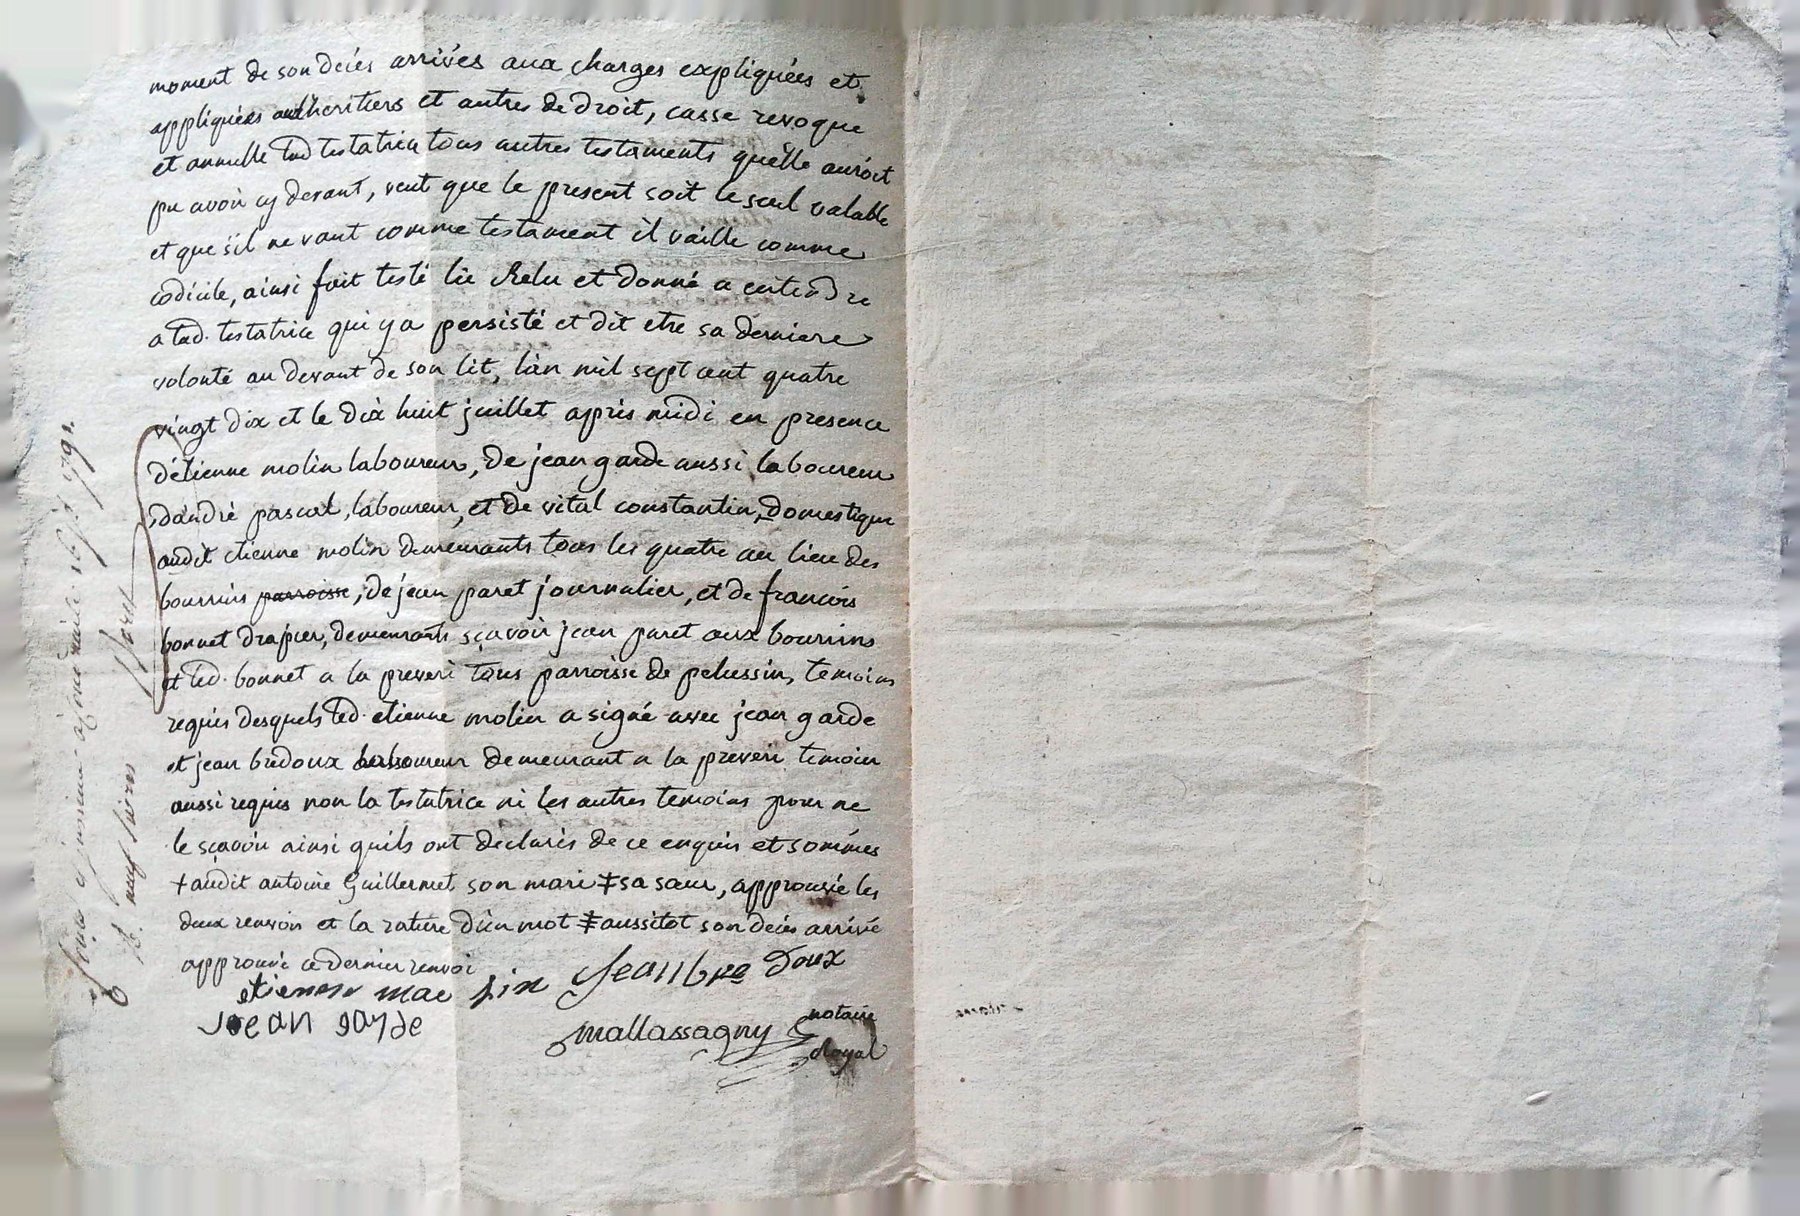 moment de son decés arrivés aux charges expliquées et
appliquées auxheritiers et autres de droit, casse revoque
et annulle lad testatrice tous autres testaments quelle auroit
pu avoir cy devant, veut que le present soit le seul valable
et que s'il ne vaut comme testament il vaille comme
codicile, ainsi fait testé lu Relu et donné a entendre
a lad. testatrice qui y a persisté et dit etre sa derniere
volonté au devant de son lit, l'an mil sept cent quatre
vingt dix et le dix huit juillet après midi en presence
d'étienne molin laboureur, de jean garde aussi laboureur
d'andré pascal, laboureur, et de vital constantin, domestique
audit etienne molin demeurants tous les quatre au lieu des
bourrins parroisse, de jean paret journalier, et de francois
bonnet drapier, demeurants sçavoir jean paret aux bourrins
et led. bonnet a la preveri tous parroisse de pelussin, temoins
requis desquels led. etienne molin a signé avec jean garde
et jean bredoux laboureur demeurant a la preveri temoin
aussi requis non la testatrice ni les autres temoins pour ne
le sçavoir ainsi quils ont declarés de ce enquis et sommés
+ audit antoine Guillermet son mari ‡ sa sœur, approuvée les
deux renvois et la rature d'un mot ‡ aussitot son deces arrivé
approuvé ce dernier renvoi
etienne mo lin Jean bre doux
Jean garde
mallassagny notaire
Royal